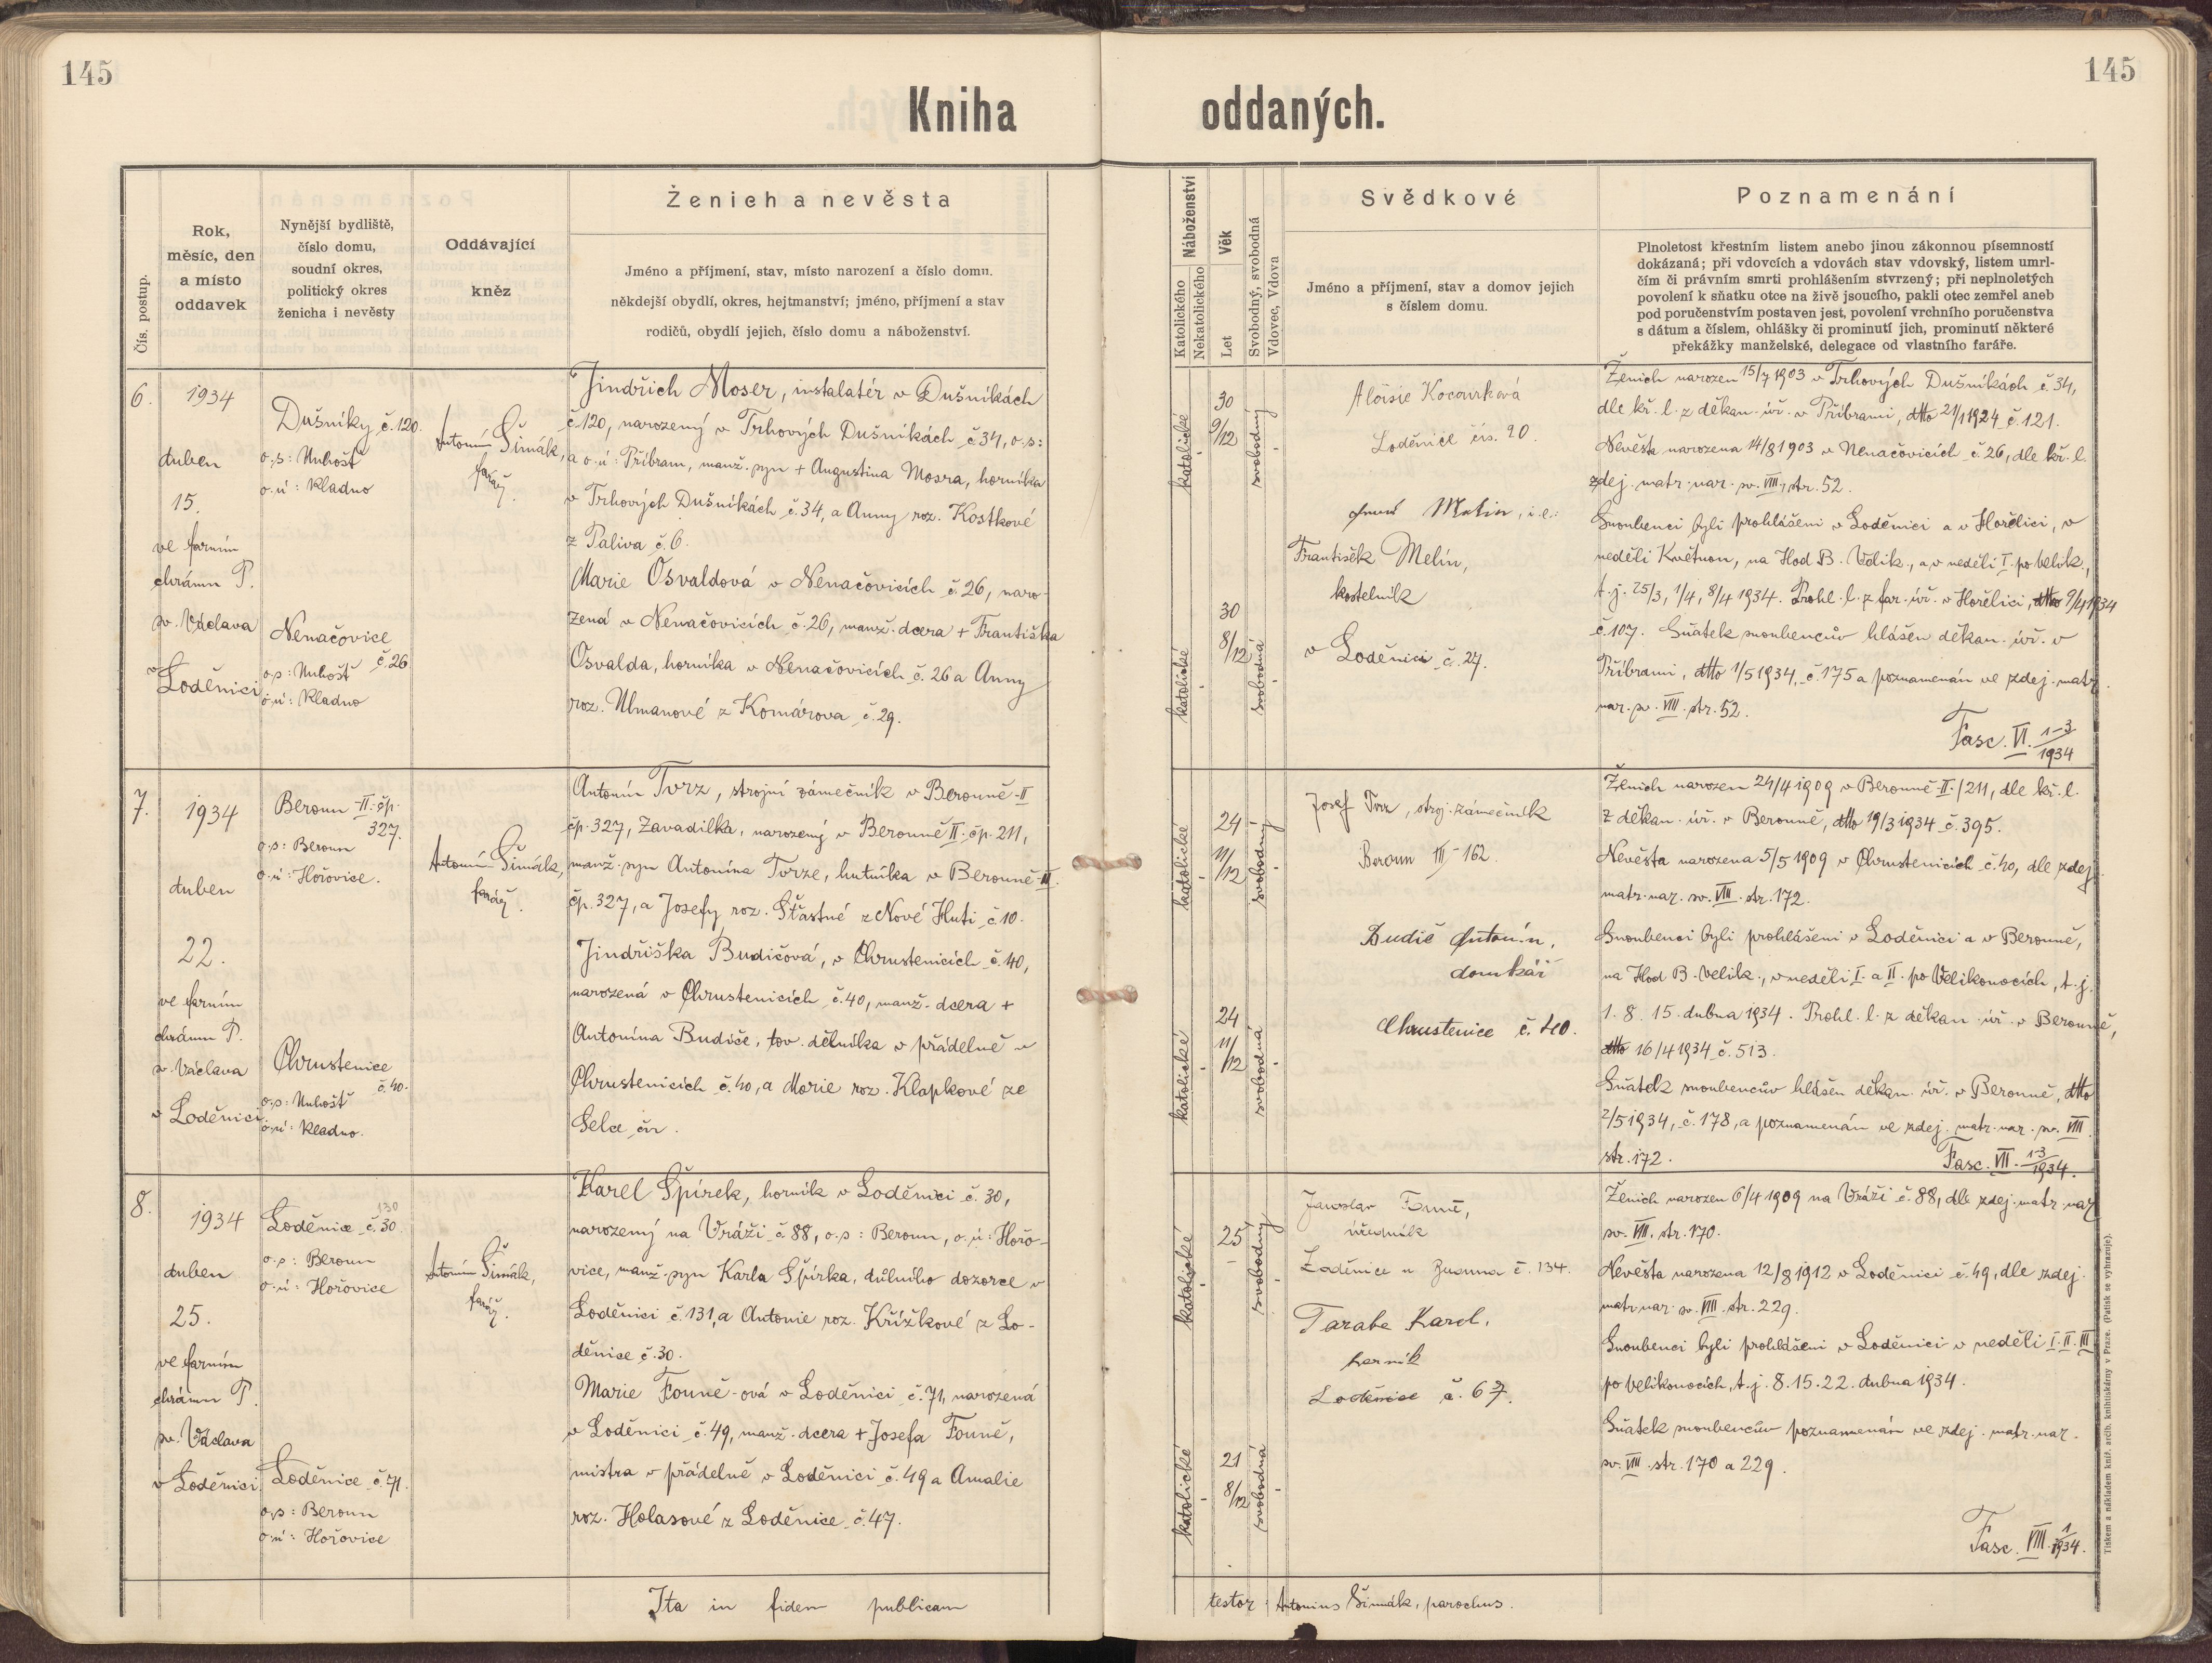 145
145
Kniha oddaných.
Čís. postup.
Rok,
měsíc, den
a místo
oddavek
Nynější bydliště,
číslo domu,
soudní okres,
politický okres
ženicha i nevěsty
Oddávající
kněz
Ženich a nevěsta
Jméno a příjmení, stav, místo narození a číslo domu.
někdejší obydlí, okres, hejtmanství; jméno, příjmení a stav
rodičů, obydlí jejich, číslo domu a náboženství.
Náboženství
Katolického
Nekatolického
Věk
Let
Svobodný, svobodná
Vdovec, Vdova
Svědkové
Jméno a příjmení, stav a domov jejich
s číslem domu.
Poznamenání
Plnoletost křestním listem anebo jinou zákonnou písemností
dokázaná; při vdovcích a vdovách stav vdovský, listem umrl-
čím či právním smrti prohlášením stvrzený; při neplnoletých
povolení k sňatku otce na živě jsoucího, pakli otec zemřel aneb
pod poručenstvím postaven jest, povolení vrchního poručenstva
s dátum a číslem, ohlášky či prominutí jich, prominutí některé
překážky manželské, delegace od vlastního faráře.
6.
1934
duben
15.
ve farním
chrámu P.
sv. Václava
v Loděnici
Dušníky č.120.
o.s: Unhošť
o.ú: Kladno
Nenačovice
č.26
o.s: Unhošť
o.ú: Kladno
Antonín Šimák,
farář.
Jindřich Moser, instalatér v Dušníkách
č.120, narozený v Trhových Dušníkách č.34, o.s:
a o.ú: Příbram, manž. syn + Augustina Mosra, horníka
v Trhových Dušníkách č.34, a Anny roz. Kostkové
z Paliva č.6.
Marie Osvaldová v Nenačovicích č.26, naro-
zená v Nenačovicích č.26, manž. dcera + Františka
Osvalda, horníka v Nenačovicích č.26 a Anny
roz. Ulmanové z Komárova č.29.
katolické
30
9/12
svobodný
katolické
30
8/12
svobodná
Aloisie Kocourková
Loděnice čís. 20.
Melin, i.e.:
František Melín,
kostelník
v Loděnici č.27.
Ženich narozen 15/7 1903 v Trhových Dušníkách č.34,
dle kř. l. z děkan. úř. v Příbrami, dtto 21/1 1924 č.121.
Nevěsta narozena 14/8 1903 v Nenačovicích č.26, dle kř. l.
zdej. matr. nar. sv. VIII., str. 52.
Snoubenci byli prohlášeni v Loděnici a v Hořelici, v
neděli Květnou, na Hod B. Velik., a v neděli I. po velik.,
t.j. 25/3, 1/4, 8/4 1934. Prohl. l. z far. úř. v Hořelici, dtto 9/4 1934
č.107. Sňatek snoubencův hlášen děkan. úř. v
Příbrami, dtto 1/5 1934, č.175 a poznamenán ve zdej. matr.
nar. sv. VIII. str. 52.
Fasc. VI. 1-3/1934
7.
1934
duben
22.
ve farním
chrámu P.
sv. Václava
v Loděnici
Beroun-II. čp.
327.
o.s: Beroun
o.ú: Hořovice.
Chrustenice
č.40.
o.s: Unhošť
o.ú: Kladno.
Antonín Šimák,
farář.
Antonín Tvrz, strojní zámečník v Berouně-II
čp.327, Zavadilka, narozený v Berouně II. čp. 211,
manž. syn Antonína Tvrze, hutníka v Berouně-II.
čp.327, a Josefy roz. Šťastné z Nové Huti č.10.
Jindřiška Budičová, v Chrustenicích č.40,
narozená v Chrustenicích č.40, manž. dcera +
Antonína Budiče, tov. dělníka v přádelně v
Chrustenicích č.40, a Marie roz. Klapkové ze
Selce
katolické
24
11/12
svobodný
katolické
24
11/12
svobodná
Josef Tvrz, stroj. zámečník
Beroun III-162.
Budič Antonín,
domkář
Chrustenice č. 40.
Ženich narozen 24/4 1909 v Berouně-II./211, dle kř. l.
z děkan. úř. v Berouně, dtto 19/3 1934 č.395.
Nevěsta narozena 5/5 1909 v Chrustenicích č.40, dle zdej.
matr. nar. sv. VIII. str. 172.
Snoubenci byli prohlášeni v Loděnici a v Berouně,
na Hod B. velik., v neděli I. a II. po Velikonocích, t.j.
1. 8. 15. dubna 1934. Prohl. l. z děkan. úř. v Berouně,
dtto 16/4 1934 č.513.
Sňatek snoubencův hlášen děkan. úř. v Berouně, dtto
2/5 1934, č.178, a poznamenán ve zdej. matr. nar. sv. VIII.
str. 172.
Fasc. VII. 1-3/1934.
8.
1934
duben
25.
ve farním
chrámu P.
sv. Václava
v Loděnici
130
Loděnice č.30
o.s: Beroun
o.ú: Hořovice
Loděnice č.71.
o.s: Beroun
o.ú: Hořovice
Antonín Šimák,
farář.
Karel Špírek, horník v Loděnici č.30,
narozený na Vráži č.88, o.s: Beroun, o.ú: Hořo-
vice, manž. syn Karla Špírka, důlního dozorce v
Loděnici č.131, a Antonie roz. Křížkové z Lo-
děnice č.30.
Marie Founě-ová v Loděnici č.71, narozená
v Loděnici č.49, manž. dcera + Josefa Founě,
mistra v přádelně v Loděnici č.49 a Amalie
roz. Holasové z Loděnice č.47.
katolické
25
svobodný
katolické
21
8/12
svobodná
Jaroslav Founě,
úředník
Loděnice u Berouna č. 134.
Taraba Karel,
horník
Loděnice č. 67.
Ženich narozen 6/4 1909 na Vráži č.88, dle zdej. matr. nar.
sv. VIII. str. 170.
Nevěsta narozena 12/8 1912 v Loděnici č.49, dle zdej.
matr. nar. sv. VIII. str. 229.
Snoubenci byli prohlášeni v Loděnici v neděli I. II. III.
po velikonocích, t.j. 8. 15. 22. dubna 1934.
Sňatek snoubencův poznamenán ve zdej. matr. nar.
sv. VIII. str. 170 a 229.
Fasc. VIII. 1/1934.
Ita in fidem publicam
testor Antonius Šimák, parochus.
Tiskem a nákladem kníž. arcib. knihtiskárny v Praze. (Patisk se vyhrazuje).